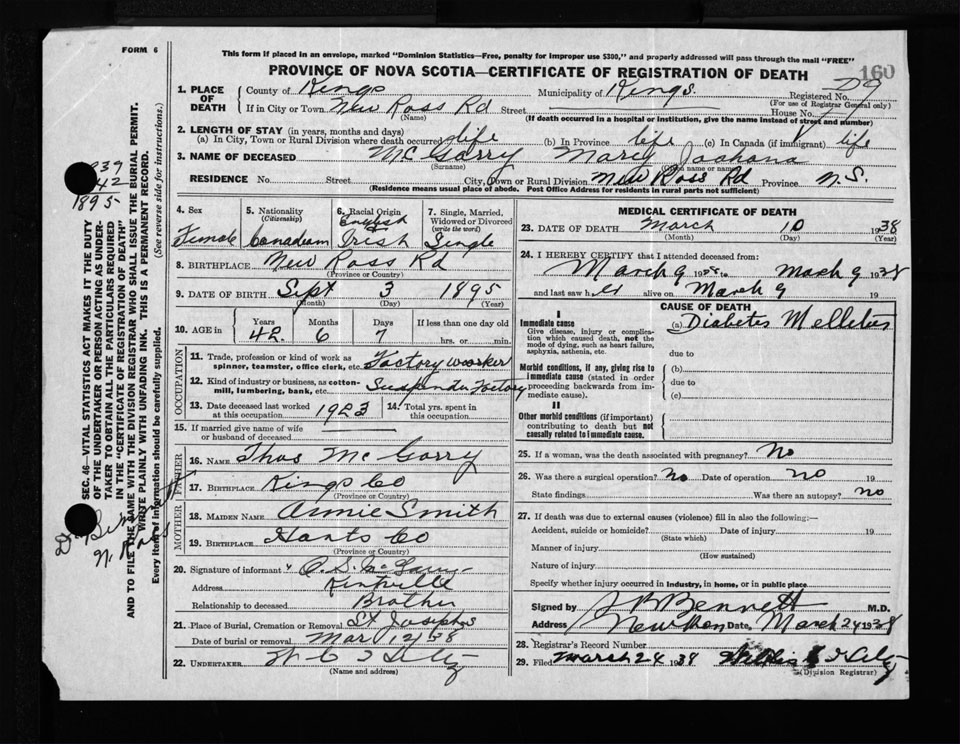 FORM 6
This form if placed in an envelope, marked "Dominion Statistics—Free, penalty for improper use $300," and properly addressed will pass through the mail "FREE"
160
PROVINCE OF NOVA SCOTIA—CERTIFICATE OF REGISTRATION OF DEATH
1. PLACE OF DEATH
County of Kings Municipality of Kings Registered No.
(For use of Registrar General only)
If in City or Town New Ross Rd Street House No.
(Name) (If death occurred in a hospital or institution, give the name instead of street and number)
2. LENGTH OF STAY (in years, months and days)
(a) In City, Town or Rural Division where death occurred life (b) In Province life (c) In Canada (if immigrant) life
3. NAME OF DECEASED McGarry Mary
(Surname)
RESIDENCE No. Street City, Town or Rural Division New Ross Rd Province N.S.
(Residence means usual place of abode. Post Office Address for residents in rural parts not sufficient)
4. Sex Female
5. Nationality (Citizenship) Canadian
6. Racial Origin English Irish
7. Single, Married, Widowed or Divorced (write the word) Single
8. BIRTHPLACE New Ross Rd
(Province or Country)
9. DATE OF BIRTH Sept 3 1895
(Month) (Day) (Year)
10. AGE in Years 42 Months 6 Days 7 If less than one day old
hrs. or min.
OCCUPATION
11. Trade, profession or kind of work as spinner, teamster, office clerk, etc. Factory worker
12. Kind of industry or business, as cotton-mill, lumbering, bank, etc. Suspender Factory
13. Date deceased last worked at this occupation 1923
14. Total yrs. spent in this occupation
15. If married give name of wife or husband of deceased
FATHER
16. NAME Thos McGarry
17. BIRTHPLACE Kings Co
(Province or Country)
MOTHER
18. MAIDEN NAME Annie Smith
19. BIRTHPLACE Hants Co
(Province or Country)
20. Signature of informant
Address Kentville
Relationship to deceased Brother
21. Place of Burial, Cremation or Removal St Josephs
Date of burial or removal Mar 12/38
22. UNDERTAKER
(Name and address)
MEDICAL CERTIFICATE OF DEATH
23. DATE OF DEATH March 10 1938
(Month) (Day) (Year)
24. I HEREBY CERTIFY that I attended deceased from:
March 9 1938 to March 9 1938
and last saw her alive on March 9 19
CAUSE OF DEATH
I
Immediate cause (a) Diabetes Mellitus
Give disease, injury or complication which caused death, not the mode of dying, such as heart failure, asphyxia, asthenia, etc.
due to
Morbid conditions, if any, giving rise to immediate cause (stated in order proceeding backwards from immediate cause).
(b)
due to
(c)
II
Other morbid conditions (if important) contributing to death but not causally related to immediate cause.
25. If a woman, was the death associated with pregnancy? No
26. Was there a surgical operation? No Date of operation no 19
State findings Was there an autopsy? no
27. If death was due to external causes (violence) fill in also the following:—
Accident, suicide or homicide? Date of injury 19
(State which)
Manner of injury
(How sustained)
Nature of injury
Specify whether injury occurred in industry, in home, or in public place
Signed by J B Bennett M.D.
Address Date, March 24 1938
28. Registrar's Record Number
29. Filed March 24 1938
(Division Registrar)
SEC. 46—VITAL STATISTICS ACT MAKES IT THE DUTY
OF THE UNDERTAKER OR PERSON ACTING AS UNDER-
TAKER TO OBTAIN ALL THE PARTICULARS REQUIRED
IN THE "CERTIFICATE OF REGISTRATION OF DEATH"
AND TO FILE THE SAME WITH THE DIVISION REGISTRAR WHO SHALL ISSUE THE BURIAL PERMIT.
WRITE PLAINLY WITH UNFADING INK. THIS IS A PERMANENT RECORD.
Every item of information should be carefully supplied. (See reverse side for instructions.)
1895